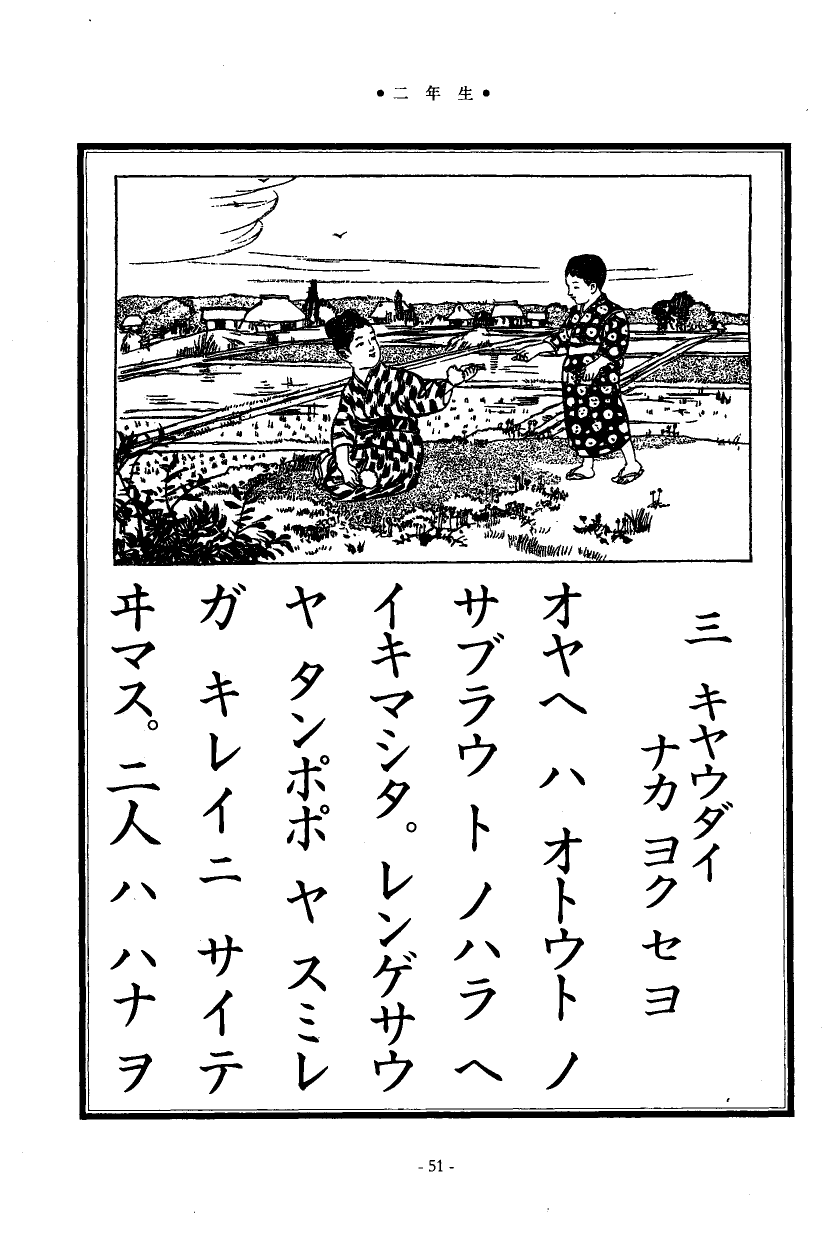 ●二年生●
三 キヤウダイ
ナカ ヨク セヨ
オヤヘ ハ オトウト ノ
サブラウ ト ノハラ ヘ
イキマシタ。レンゲサウ
ヤ タンポポ ヤ スミレ
ガ キレイニ サイテ
ヰマス。二人 ハ ハナ ヲ
- 51 -